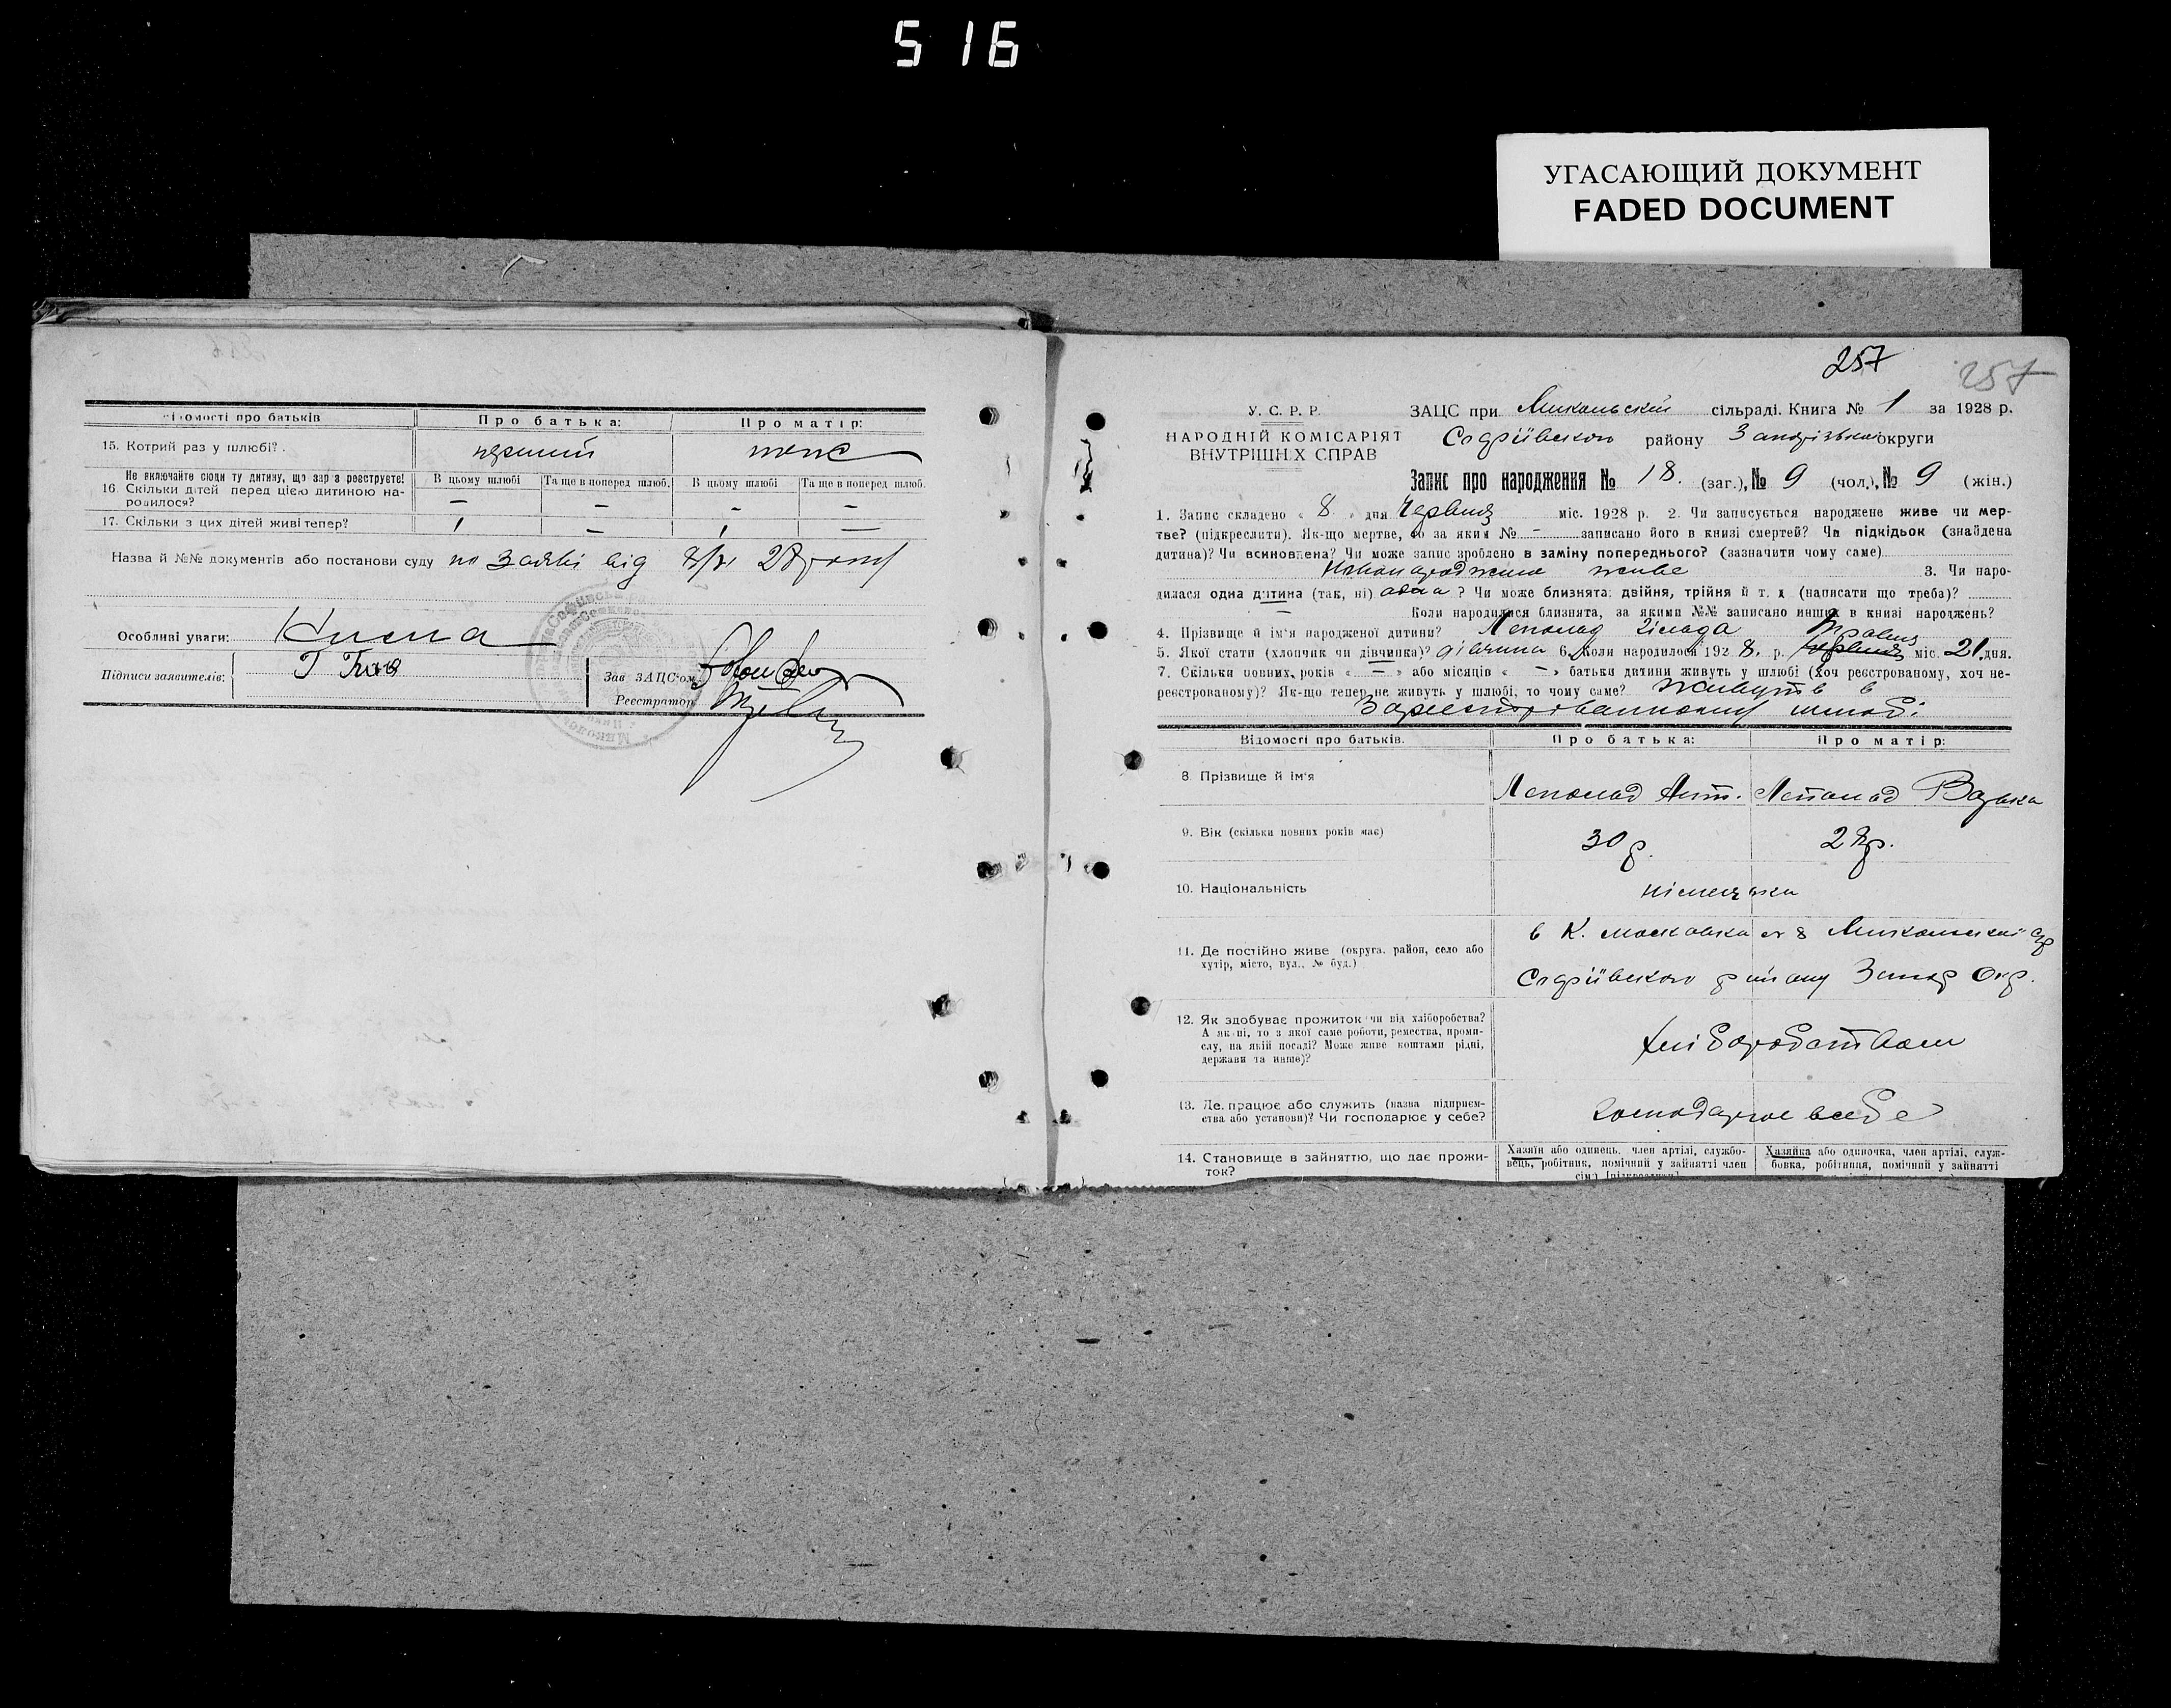 516
УГАСАЮЩИЙ ДОКУМЕНТ
FADED DOCUMENT
Відомості про батьків
Про батька:
Про матір:
15. Котрий раз у шлюбі?
перший
тоже
Не включайте сюди ту дитину, що зараз реєструєте!
16. Скільки дітей перед цією дитиною на-
родилося?
В цьому шлюбі
Та ще в поперед шлюб.
В цьому шлюбі
Та ще в поперед шлюб.
– – – –
17. Скільки з цих дітей живі тепер?
1 – 1 –
Назва й №№ документів або постанови суду по заяві від 8/VI 28 року
Особливі уваги: Нима
Підписи заявителів:
Зав ЗАЦС'ом
Реєстратор
257
257
У. С. Р. Р.
НАРОДНІЙ КОМІСАРІЯТ
ВНУТРІШНІХ СПРАВ
ЗАЦС при Микольській сільраді. Книга № 1 за 1928 р.
Софіївского району Запорізької округи
Запис про народження № 18. (заг.), № 9 (чол.), № 9 (жін.)
1. Запис складено « 8 » дня Червня міс. 1928 р. 2. Чи записується народжене живе чи мер-
тве? (підкреслити). Як-що мертве, то за яким № – записано його в книзі смертей? Чи підкідьок (знайдена
дитина)? Чи всиновлена? Чи може запис зроблено в заміну попереднього? (зазначити чому саме)
Новонароджене живе 3. Чи наро-
дилася одна дитина (так, ні) одна? Чи може близнята: двійня, трійня й т. д. (написати що треба)?
– Коли народилися близнята, за якими №№ записано инших в книзі народжень?
4. Прізвище й ім'я народженої дитини? Леполад
Травня
5. Якої стати (хлопчик чи дівчинка)? дівчина 6. Коли народилося 1928. р. червня міс. 21. дня.
7. Скільки повних, років « – » або місяців « – » батьки дитини живуть у шлюбі (хоч реєстрованому, хоч не-
реєстрованому)? Як-що тепер не живуть у шлюбі, то чому саме? живуть в
Зареєстрованному шлюбі
Відомості про батьків.
Про батька:
Про матір:
8. Прізвище й ім'я
Леполад Ант.
Леполад
9. Вік (скільки повних років має)
30 р.
28 р.
10. Національність
німецька
11. Де постійно живе (округа, район, село або
хутір, місто, вул., № буд.)
в К. Московка № 8 Микольської с/р
Софіївского району Запор Окр.
12. Як здобуває прожиток чи від хліборобства?
А як ні, то з якої саме роботи, ремества, проми-
слу, на якій посаді? Може живе коштами рідні,
держави та инше)?
хліборобством
13. Де працює або служить (назва підприєм-
ства або установи)? Чи господарює у себе?
господарює в себе
14. Становище в зайняттю, що дає прожи-
ток?
Хазяїн або одинець, член артілі, службо-
вець, робітник, помічний у зайнятті член
сім'ї (підкреслити)
Хазяйка або одиночка, член артілі, служ-
бовка, робітниця, помічний у зайнятті